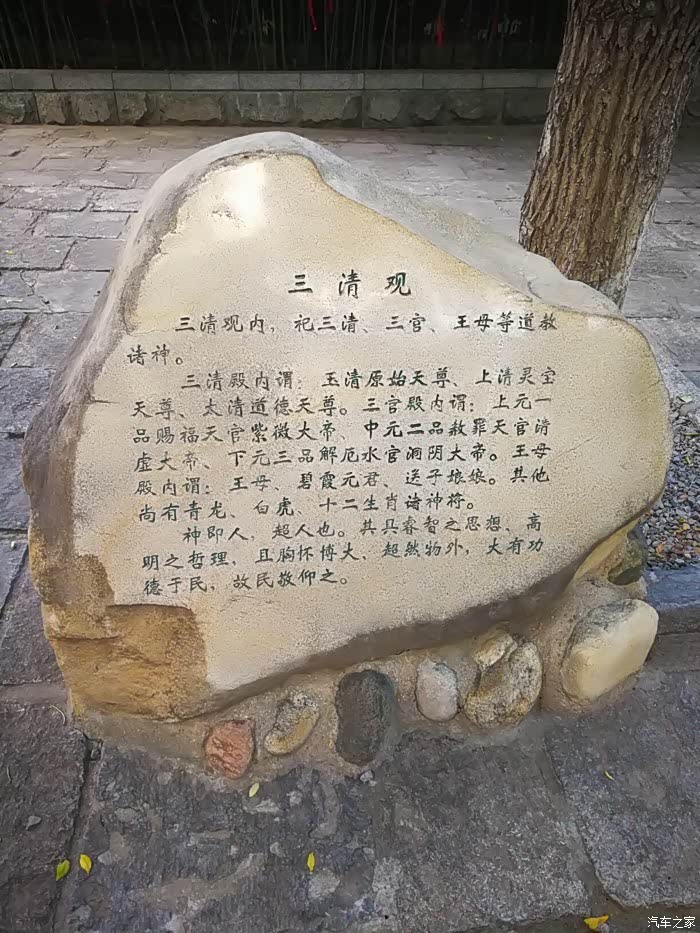 三清观
三清观内，祀三清、三官、王母等道教
诸神。
三清殿内谓：玉清原始天尊、上清灵宝
天尊、太清道德天尊。三官殿内谓：上元一
品赐福天官紫微大帝、中元二品赦罪天官清
虚大帝、下元三品解厄水官洞阴大帝。王母
殿内谓：王母、碧霞元君、送子娘娘。其他
尚有青龙、白虎、十二生肖诸神将。
神即人，超人也。其具睿智之思想、高
明之哲理，且胸怀博大、超然物外，大有功
德于民，故民敬仰之。
汽车之家